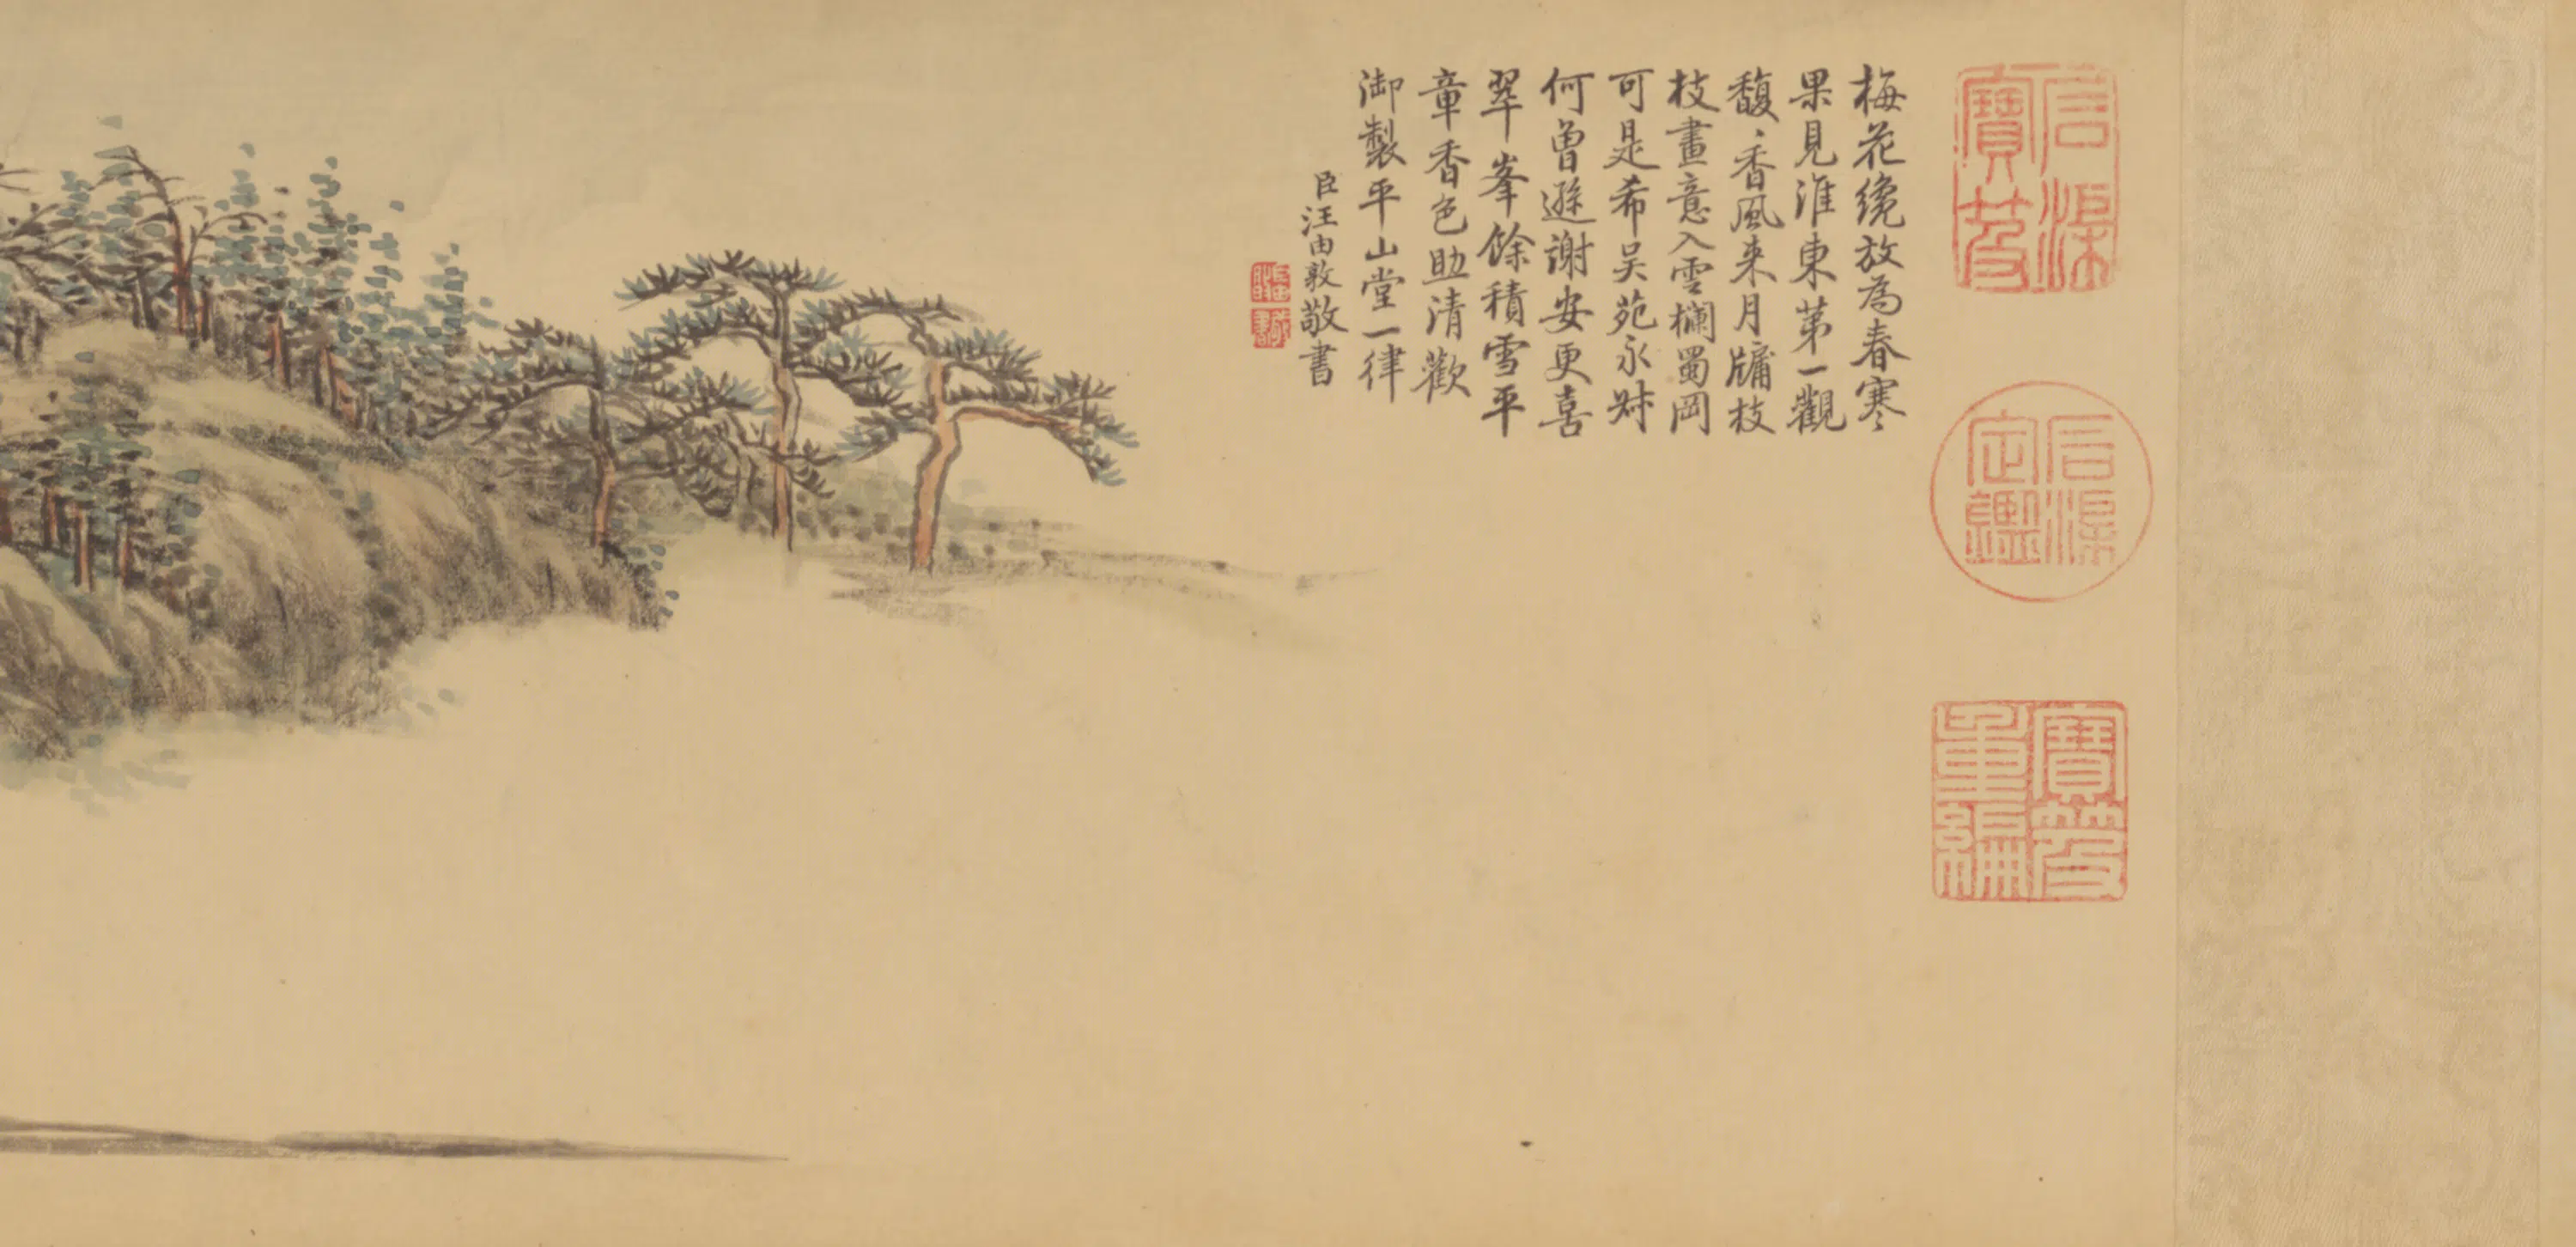 梅花纔放為春寒
果見淮東第一觀
馥〻香風来月牖枝
枝畫意入雲欄蜀岡
可是希吴苑永㫖
何曾遜謝安更喜
翠峯餘積雪平
章香色助清歡
御製平山堂一律
臣汪由敦敬書
石渠寶笈
石渠定鑑
寶笈重編